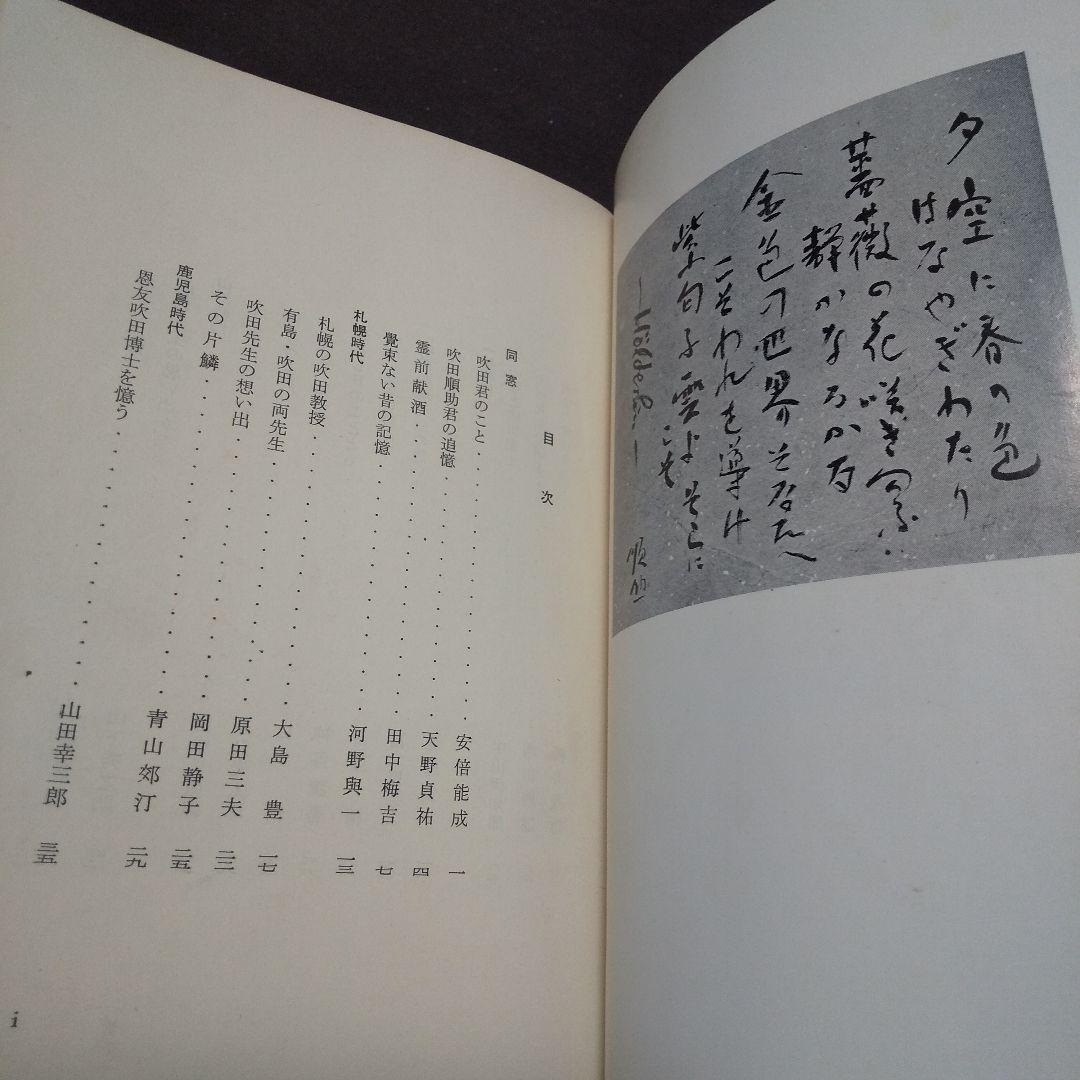 夕空に春の色
はなやぎわたり
薔薇の花咲き匂ふ
静かなるかな
金色の世界そなたへ
こそわれを導け
紫匂ふ雲よそこに
こそ
—Hölderlin—
順助
目次
同窓
吹田君のこと・・・・・・・・・・安倍能成 一
吹田順助君の追憶・・・・・・・・・・天野貞祐 四
霊前献酒・・・・・・・・・・田中梅吉 七
覺束ない昔の記憶・・・・・・・・・・河野與一 一三
札幌時代
札幌の吹田教授・・・・・・・・・・大島豊 一七
有島・吹田の両先生・・・・・・・・・・原田三夫 二三
吹田先生の想い出・・・・・・・・・・岡田静子 二五
その片鱗・・・・・・・・・・青山郊汀 二九
鹿児島時代
恩友吹田博士を憶う・・・・・・・・・・山田幸三郎 三五
i